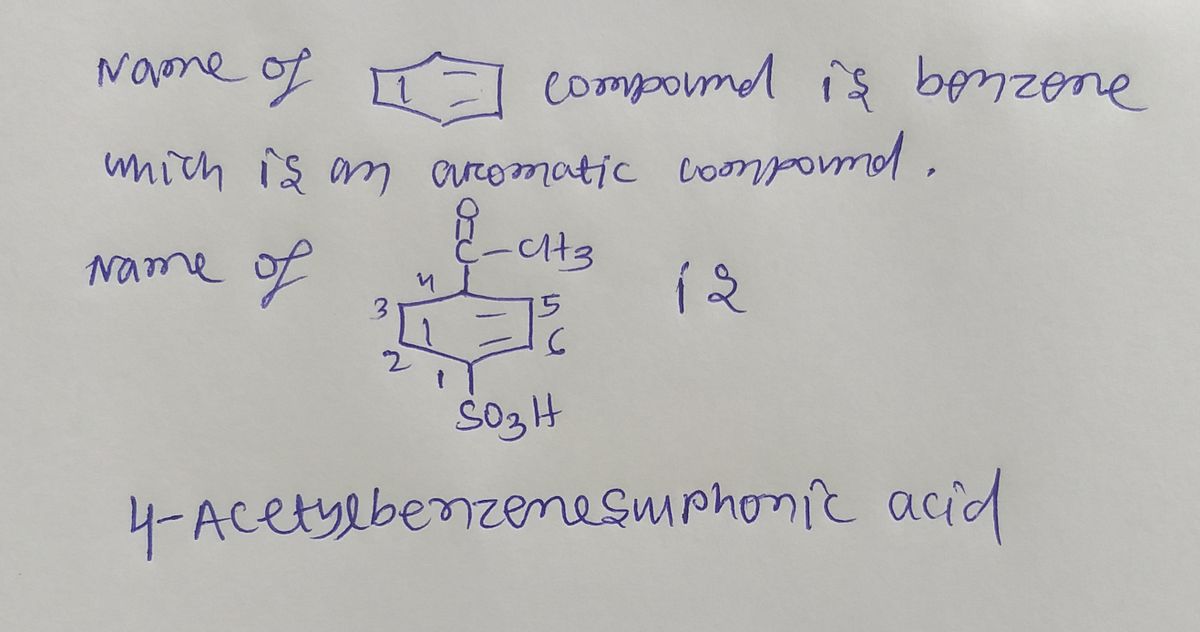 Name of compound is benzene
which is an aromatic compound.
O
C-CH3
Name of is
4
3 5
2 6
1
SO3H
4-Acetylbenzenesulphonic acid